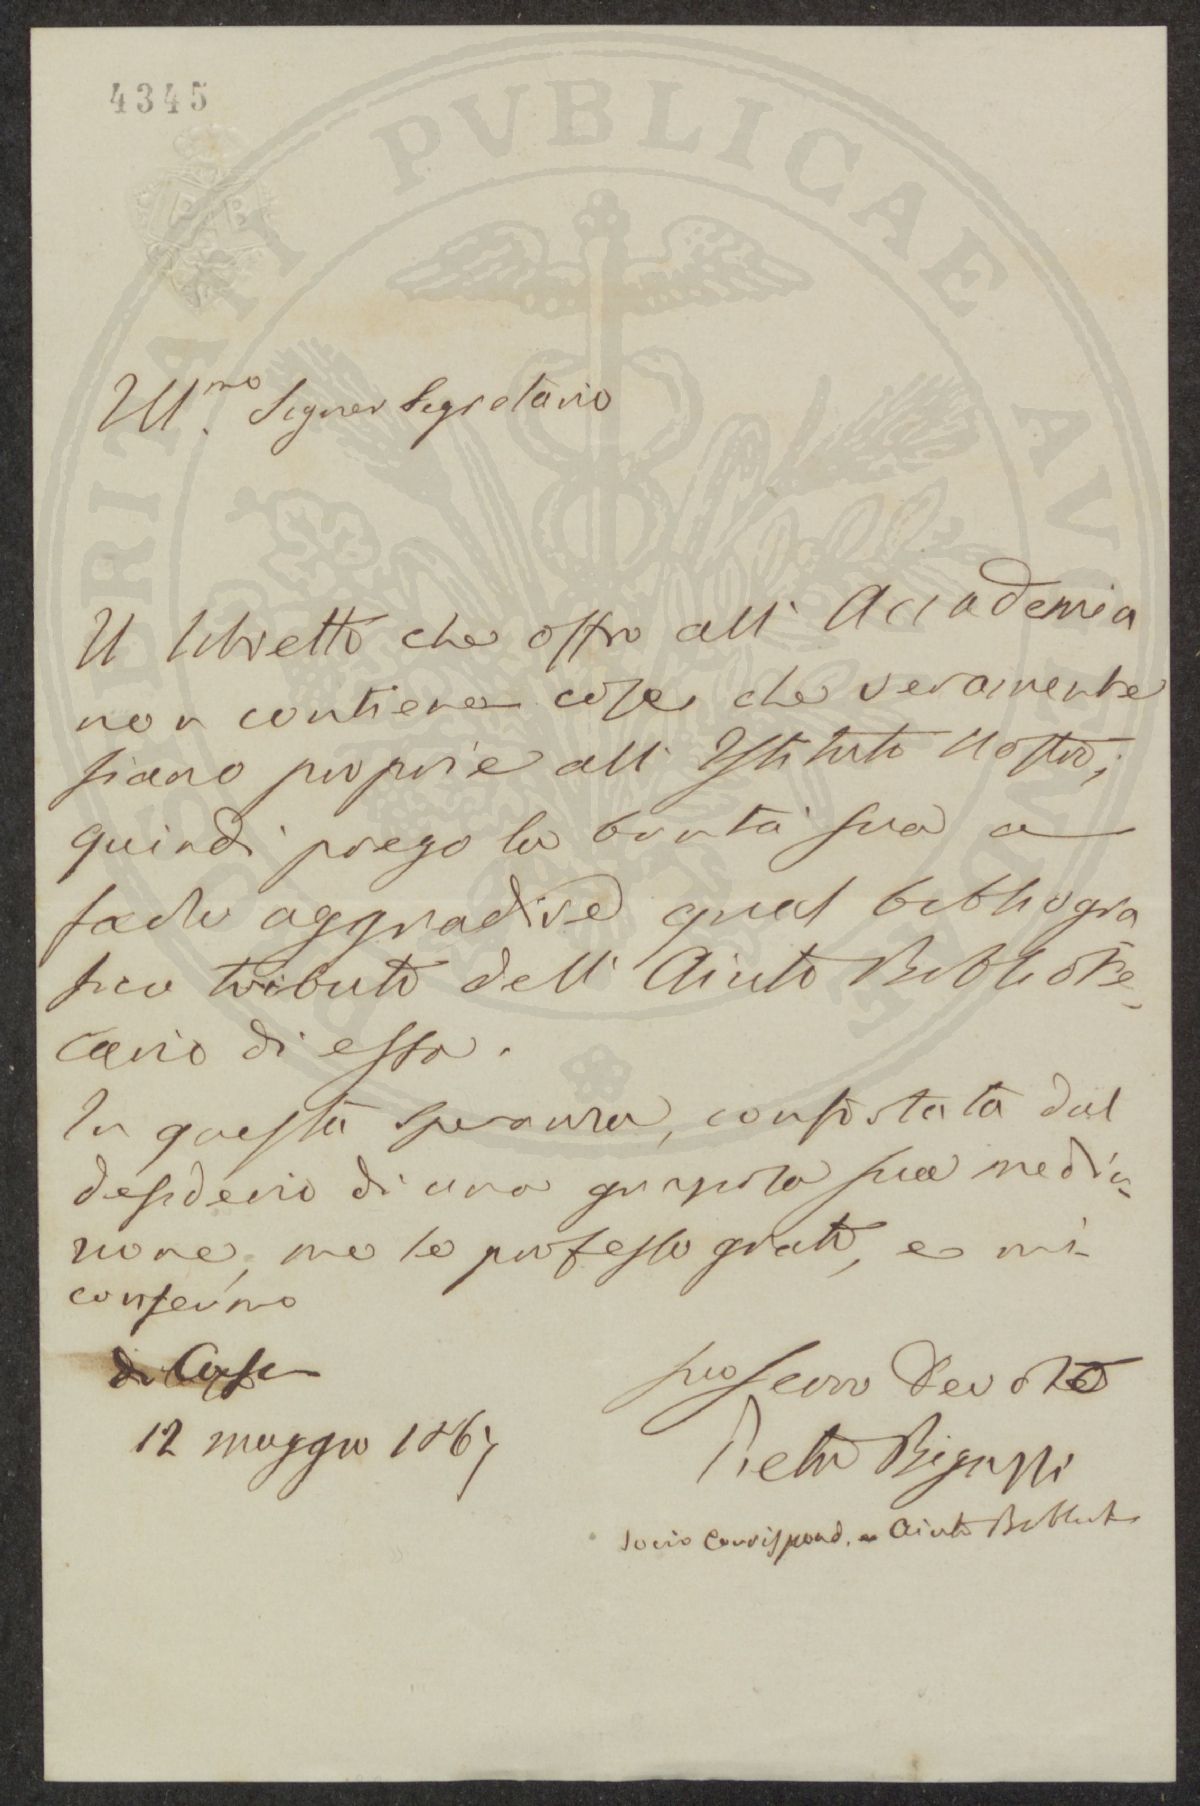 4345
PROSPERITATI PVBLICAE AVGENDAE
P B
Ill.mo Signor Segretario
Il libretto che offro all' Accademia
non contiene cose che veramente
siano proprie all' Istituto Nostro;
quindi prego la bontà sua a
farlo aggradire qual bibliogra
fico tributo dell' Aiuto Bibliote-
cario di essa.
In questa speranza, confortata dal
desiderio di una sua media-
zione, me le professo grato, e mi
confermo
di Casa
12 maggio 1867
suo servo Devoto
Pietro Bigazzi
socio Corrispond. e Aiuto Bibliot